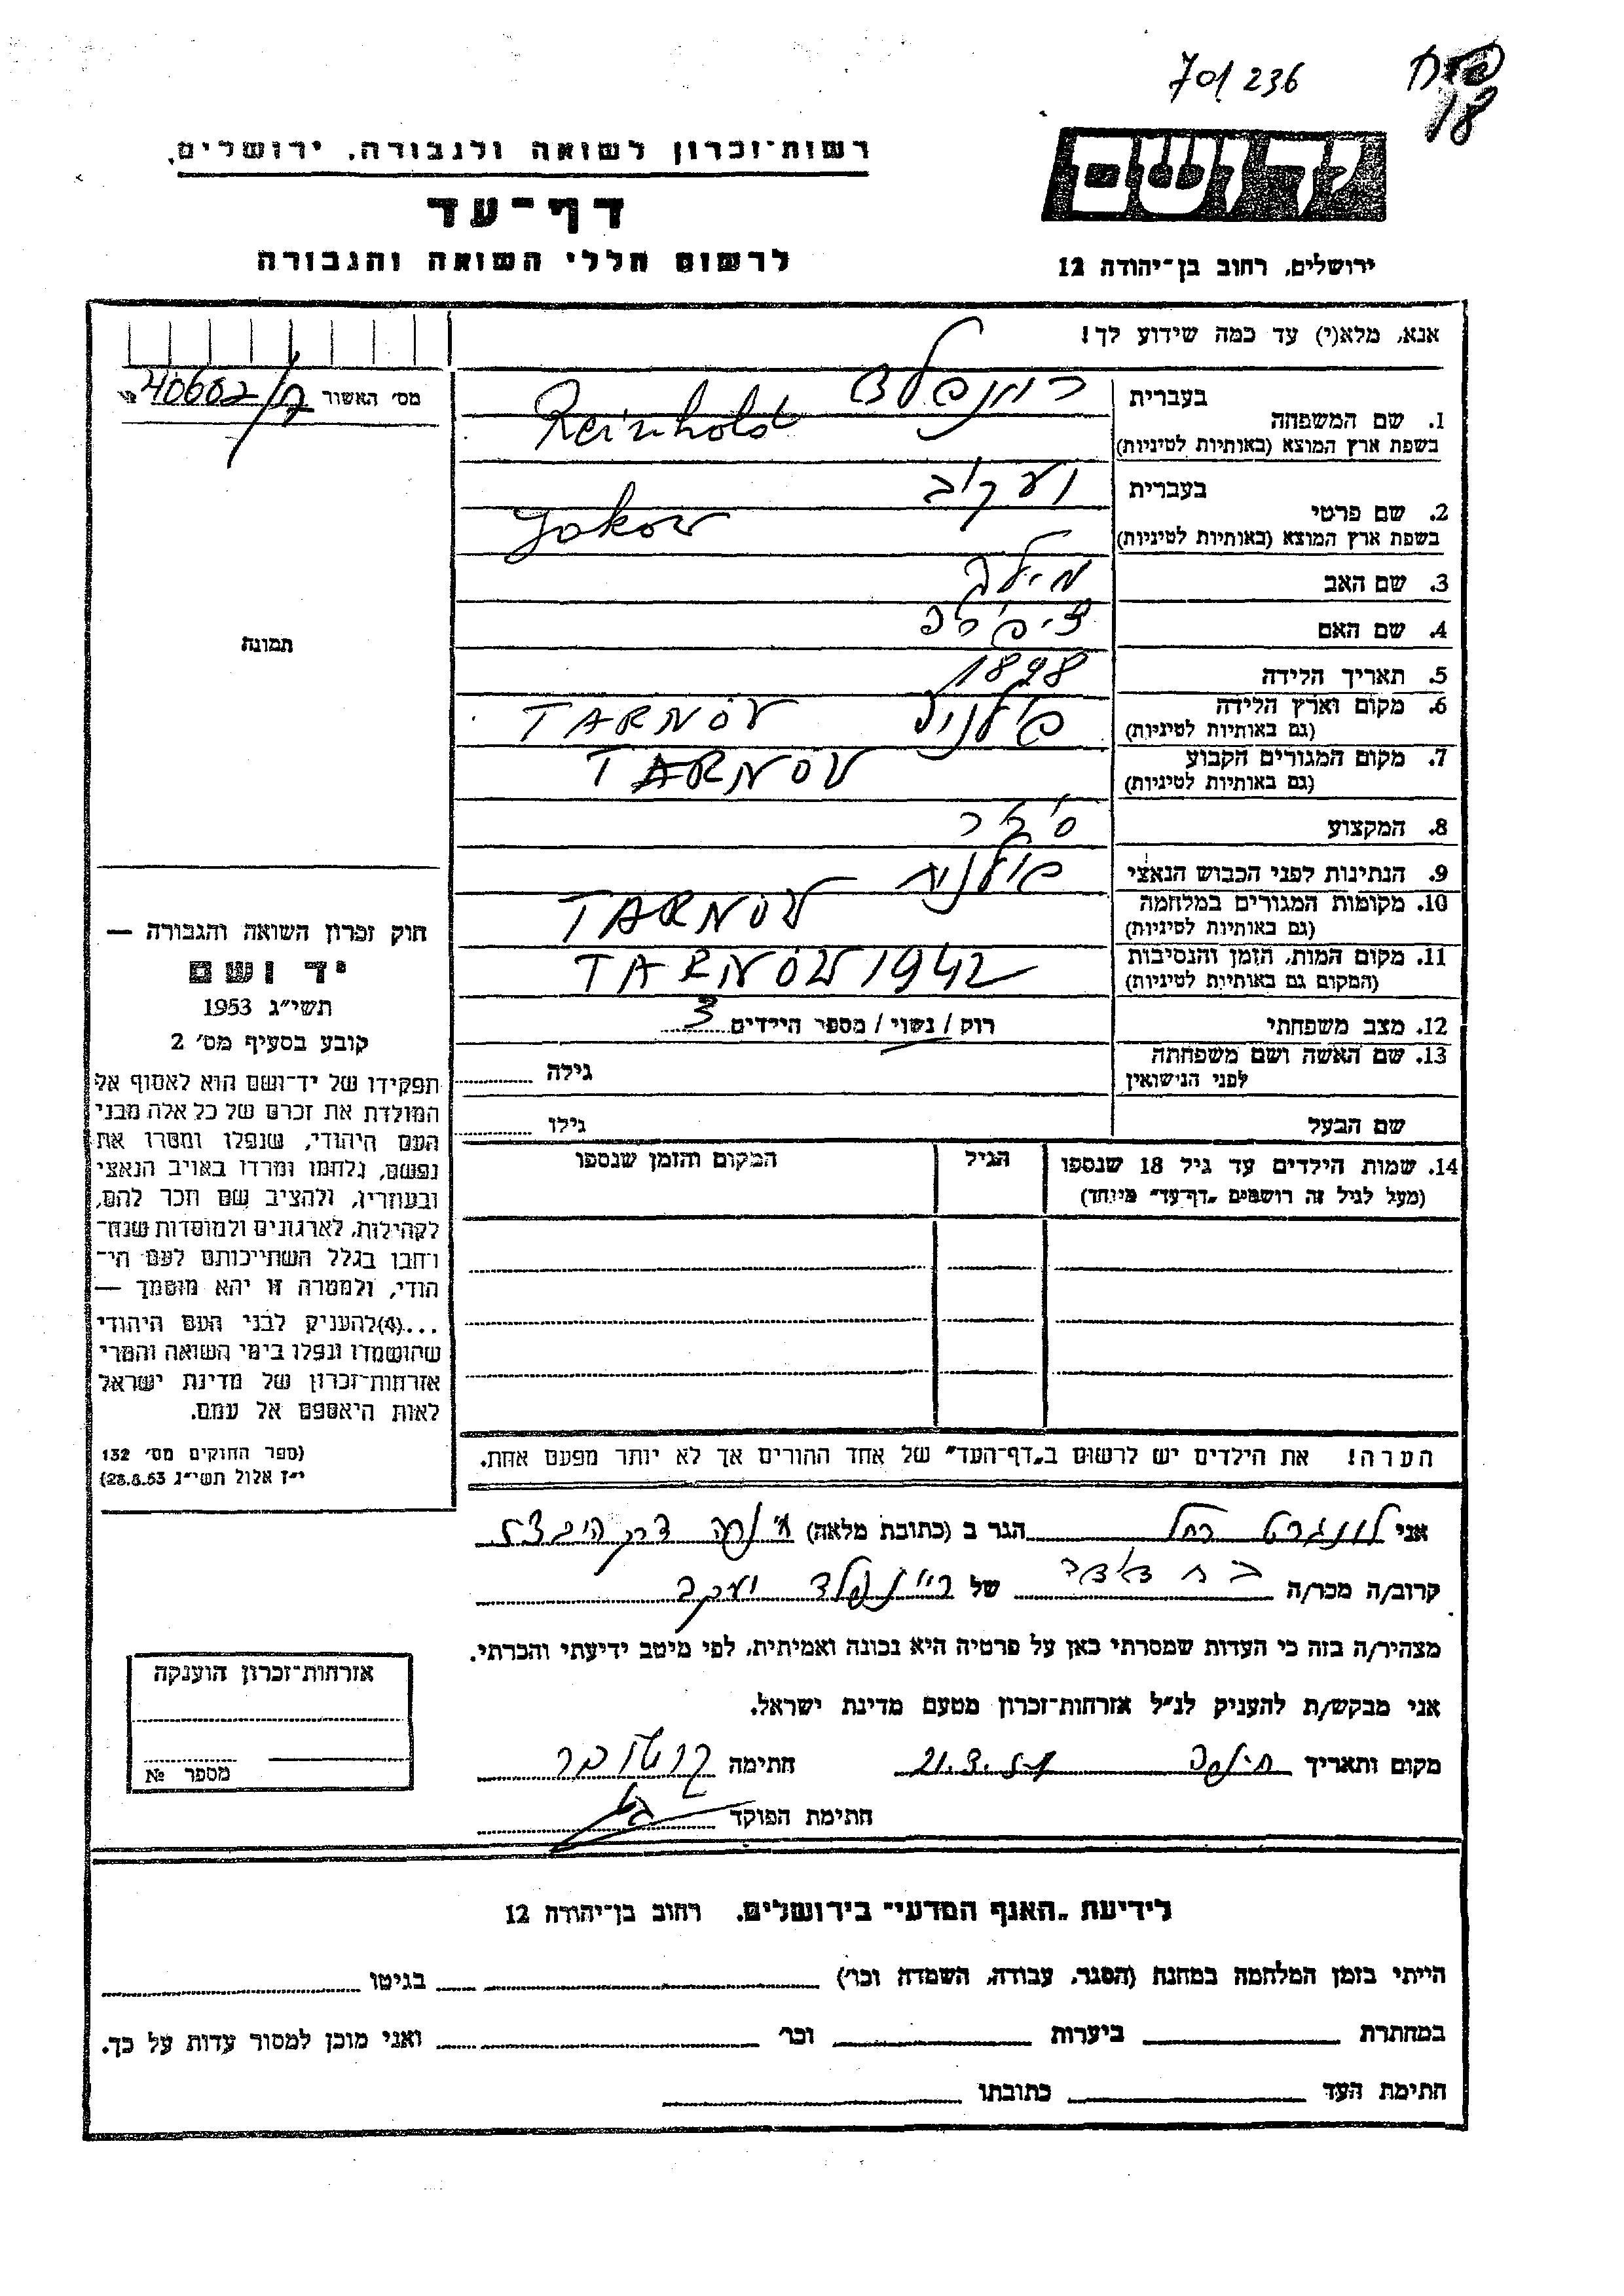 701/236
18
רשות־זכרון לשואה ולגבורה, ירושלים.
דף־עד
לרשום חללי השואה והגבורה
יד ושם
ירושלים, רחוב בן־יהודה 12
אנא, מלא(י) עד כמה שידוע לך!
מס׳ האשור
תמונה
1. שם המשפחה
בעברית
בשפת ארץ המוצא (באותיות לטיניות) Reinhold
2. שם פרטי
בעברית יעקוב
בשפת ארץ המוצא (באותיות לטיניות) Jakow
3. שם האב
4. שם האם
5. תאריך הלידה 1898
6. מקום וארץ הלידה
(גם באותיות לטיניות) TARNÓW
7. מקום המגורים הקבוע
(גם באותיות לטיניות) TARNOW
8. המקצוע
9. הנתינות לפני הכבוש הנאצי פולנית
10. מקומות המגורים במלחמה
(גם באותיות לטיניות) TARNÓW
11. מקום המות, הזמן והנסיבות
(המקום גם באותיות לטיניות) TARNÓW 1942
12. מצב משפחתי רוק / נשוי / מספר הילדים 3
13. שם האשה ושם משפחתה
לפני הנישואין
גילה
שם הבעל גילו
14. שמות הילדים עד גיל 18 שנספו
(מעל לגיל זה רושמים „דף־עד״ מיוחד)
הגיל
המקום והזמן שנספו
הערה! את הילדים יש לרשום ב„דף־העד״ של אחד ההורים אך לא יותר מפעם אחת.
חוק זכרון השואה והגבורה —
יד ושם
תשי״ג 1953
קובע בסעיף מס׳ 2
תפקידו של יד־ושם הוא לאסוף אל
המולדת את זכרם של כל אלה מבני
העם היהודי, שנפלו ומסרו את
נפשם, נלחמו ומרדו באויב הנאצי
ובעוזריו, ולהציב שם וזכר להם,
לקהילות, לארגונים ולמוסדות שנח־
רחבו בגלל השתייכותם לעם הי־
הודי, ולמטרה זו יהא מוסמך —
...(4)להעניק לבני העם היהודי
שהושמדו ונפלו בימי השואה והמרי
אזרחות־זכרון של מדינת ישראל
לאות היאספם אל עמם.
(ספר החוקים מס׳ 132
י״ז אלול תשי״ג 28.8.53)
אני רחל הגר ב (כתובת מלאה)
קרוב/ה מכר/ה של יעקב
מצהיר/ה בזה כי העדות שמסרתי כאן על פרטיה היא נכונה ואמיתית, לפי מיטב ידיעתי והכרתי.
אני מבקש/ת להעניק לנ״ל אזרחות־זכרון מטעם מדינת ישראל.
מקום ותאריך חיפה חתימה
חתימת הפוקד
אזרחות־זכרון הוענקה
מספר №
לידיעת „האגף המדעי״ בירושלים, רחוב בן־יהודה 12
הייתי בזמן המלחמה במחנה (הסגר, עבודה, השמדה וכר׳) בגיטו
במחתרת ביערות וכר׳ ואני מוכן למסור עדות על כך.
חתימת העד כתובתו